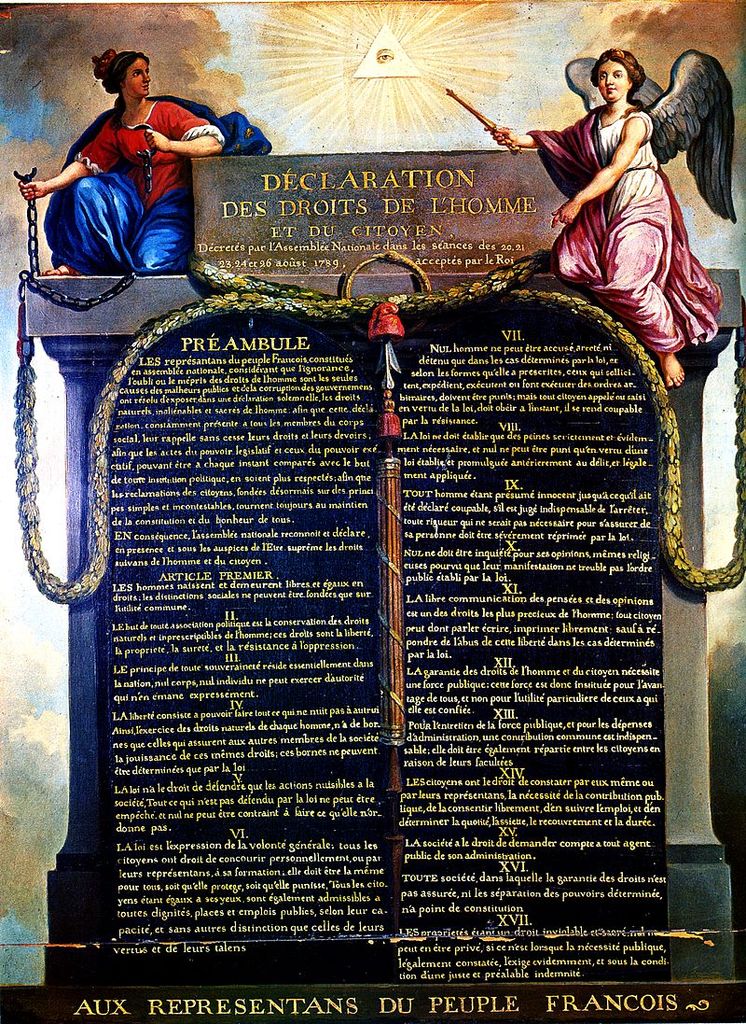 DÉCLARATION
DES DROITS DE L'HOMME
ET DU CITOYEN,
Décretés par l'Assemblée Nationale dans les séances des 20, 21
23, 24 et 26 aoûst 1789, acceptés par le Roi
PRÉAMBULE
LES représentans du peuple Francois, constitués
en assemblée nationale, considérant que l'ignorance,
l'oubli ou le mépris des droits de l'homme sont les seules
causes des malheurs publics et de la corruption des gouvernemens
ont résolu d'exposer dans une déclaration solemnelle, les droits
naturels, inaliénables et sacrés de l'homme; afin que cette décla-
ration, constamment présente a tous les membres du corps
social, leur rappelle sans cesse leurs droits et leurs devoirs,
afin que les actes du pouvoir législatif et ceux du pouvoir exé-
cutif, pouvant être a chaque instant comparés avec le but
de toute institution politique, en soient plus respectés; afin que
les reclamations des citoyens, fondées désormais sur des princi
pes simples et incontestables, tournent toujours au maintien
de la constitution et du bonheur de tous.
EN conséquence, l'assemblée nationale reconnoit et déclare,
en presence et sous les auspices de l'Etre suprême les droits
suivans de l'homme et du citoyen.
ARTICLE PREMIER.
LES hommes naissent et demeurent libres et égaux en
droits; les distinctions sociales ne peuvent être fondées que sur
l'utilité commune.
II.
LE but de toute association politique est la conservation des droits
naturels et inprescripibles de l'homme; ces droits sont la liberté,
la proprieté, la sureté, et la résistance à l'oppression.
III.
LE principe de toute souveraineté réside essentiellement dans
la nation, nul corps, nul individu ne peut exercer d'autorité
qui n'en émane expressément.
IV.
LA liberté consiste a pouvoir faire tout ce qui ne nuit pas à autrui
Ainsi, l'exercice des droits naturels de chaque homme, n'a de bor-
nes que celles qui assurent aux autres membres de la société
la jouissance de ces mêmes droits; ces bornes ne peuvent
être déterminées que par la loi
V.
LA loi n'a le droit de défendre que les actions nuisibles a la
société. Tout ce qui n'est pas défendu par la loi ne peut être
empêché, et nul ne peut être contraint à faire ce qu'elle n'or-
donne pas.
VI.
LA loi est l'expression de la volonté générale; tous les
citoyens ont droit de concourir personnellement, ou par
leurs représentans, à sa formation; elle doit être la même
pour tous, soit qu'elle protege, soit qu'elle punisse, Tous les cito
yens étant égaux a ses yeux, sont également admissibles a
toutes dignités, places et emplois publics, selon leur ca-
pacité, et sans autres distinction que celles de leurs
vertus et de leurs talens
VII.
NUL homme ne peut être accusé, arreté, ni
détenu que dans les cas déterminés par la loi, et
selon les formes qu'elle a prescrites, ceux qui sollici-
tent, expédient, exécutent ou font exécuter des ordres ar-
bitraires, doivent être punis; mais tout citoyen appelé ou saisi
en vertu de la loi, doit obéir a l'instant, il se rend coupable
par la résistance.
VIII.
LA loi ne doit établir que des peines strictement et évidem-
ment nécessaire, et nul ne peut être puni qu'en vertu d'une
loi établie et promulguée antérierement au délit, et légale-
ment appliquée.
IX.
TOUT homme étant présumé innocent jusqu'a ce qu'il ait
été déclaré coupable, s'il est jugé indispensable de l'arrêter,
toute rigueur qui ne serait pas nécessaire pour s'assurer de
sa personne doit être sévèrement réprimée par la loi.
X.
NUL ne doit être inquiété pour ses opinions, mêmes religi
euses pourvu que leur manifestation ne trouble pas l'ordre
public établi par la loi.
XI.
LA libre communication des pensées et des opinions
est un des droits les plus precieux de l'homme; tout citoyen
peut dont parler écrire, imprimer librement; sauf à ré-
pondre de l'abus de cette liberté dans les cas déterminés
par la loi.
XII.
LA garantie des droits de l'homme et du citoyen nécessite
une force publique; cette force est donc instituée pour l'avan-
tage de tous, et non pour l'utilité particuliere de ceux a qui
elle est confiée.
XIII.
POUR l'entretien de la force publique, et pour les dépenses
d'administration, une contribution commune est indispen-
sable; elle doit être également répartie entre les citoyens en
raison de leurs facultées
XIV.
LES citoyens ont le droit de constater par eux même ou
par leurs représentans, la nécessité de la contribution pub
lique, de la consentir librement, d'en suivre l'emploi, et d'en
déterminer la quotité, l'assiette, le recouvrement et la durée.
XV.
LA société a le droit de demander compte a tout agent
public de son administration.
XVI.
TOUTE société, dans laquelle la garantie des droits n'est
pas assurée, ni les séparation des pouvoirs déterminée,
n'a point de constitution
XVII.
LES proprietés étant un droit inviolable et sacré, nul ne
peut en être privé, si ce n'est lorsque la nécessité publique,
légalement constatée, l'exige evidemment, et sous la condi
tion d'une juste et préalable indemnité.
AUX REPRESENTANS DU PEUPLE FRANCOIS